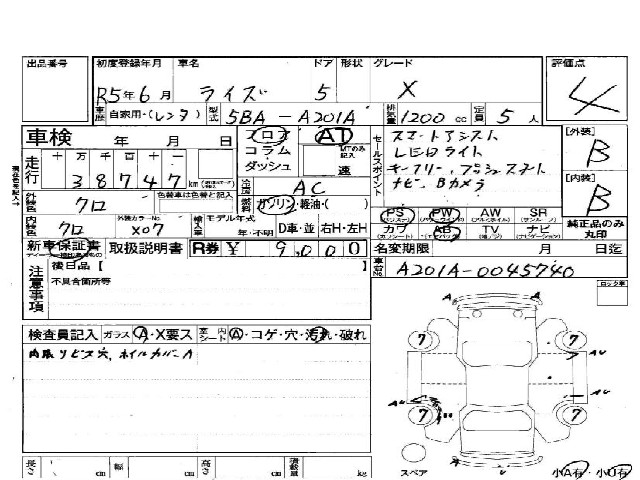 出品番号 初度登録年月 車名 ドア 形状 グレード 評価点
R5年6月 ライズ 5 X 4
車歴 自家用・(レンタ) 型式 5BA-A201A 排気量 1200 cc 定員 5 人
車検 年 月 日
フロア AT
コラム
ダッシュ MTのみ記入 速
セールスポイント スマートアシスト
LEDライト
キーフリー、プッシュスタート
ナビ、Bカメラ
[外装] B
[内装] B
純正品のみ丸印
走行 十 万 千 百 十 一
38747 km
冷房 AC
外装色 クロ 色替車は色替と記入
燃料 ガソリン・軽油・(
内装色 クロ 外装カラーNo. X07
輸入車 モデル年式 年・不明 D車・並 右H・左H
PS PW AW SR
カワ AB TV ナビ
新車保証書 取扱説明書 R券 ¥ 9,000
名変期限 月 日迄
車台No. A201A-0045740
注意事項 後日品【
不具合箇所等
ロック車
検査員記入 ガラス A・X要ス 室内シート A・コゲ・穴・汚れ・破れ
内張りビス穴、ホイルカバーA
A
7 7 AU
7 7 AU
AU
スペア
小A有・小U有
長さ cm 幅 cm 高さ cm 積載量 kg